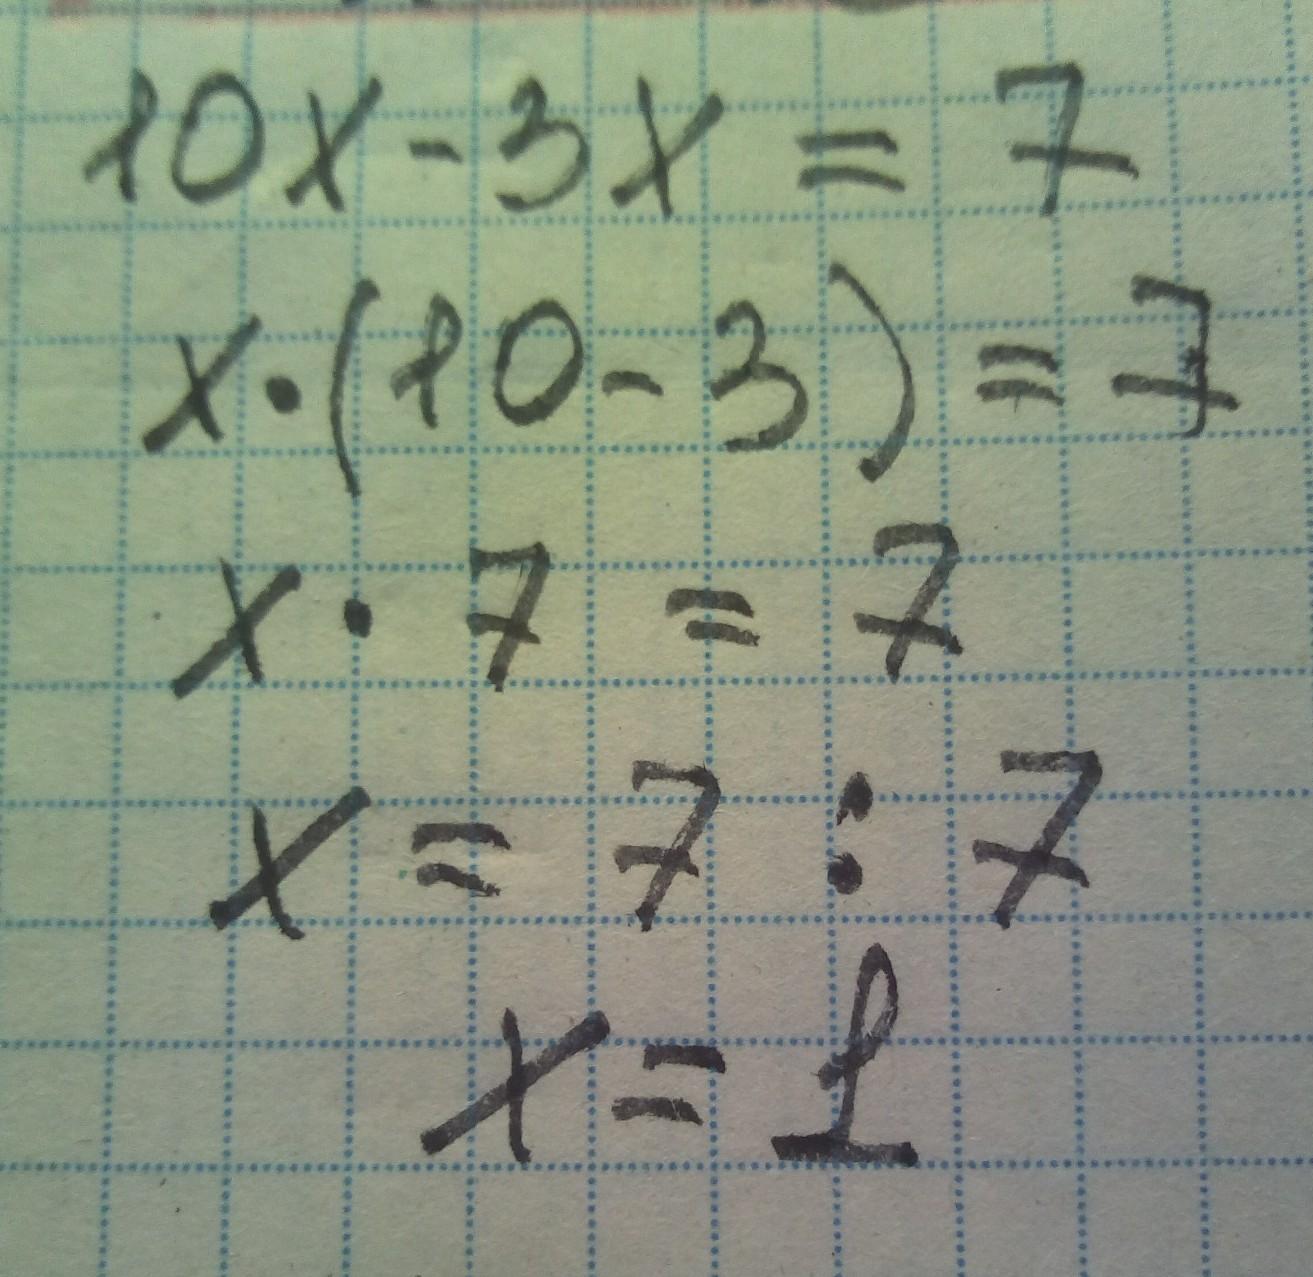 10x-3x=7
x·(10-3)=7
x·7=7
x=7:7
x=1